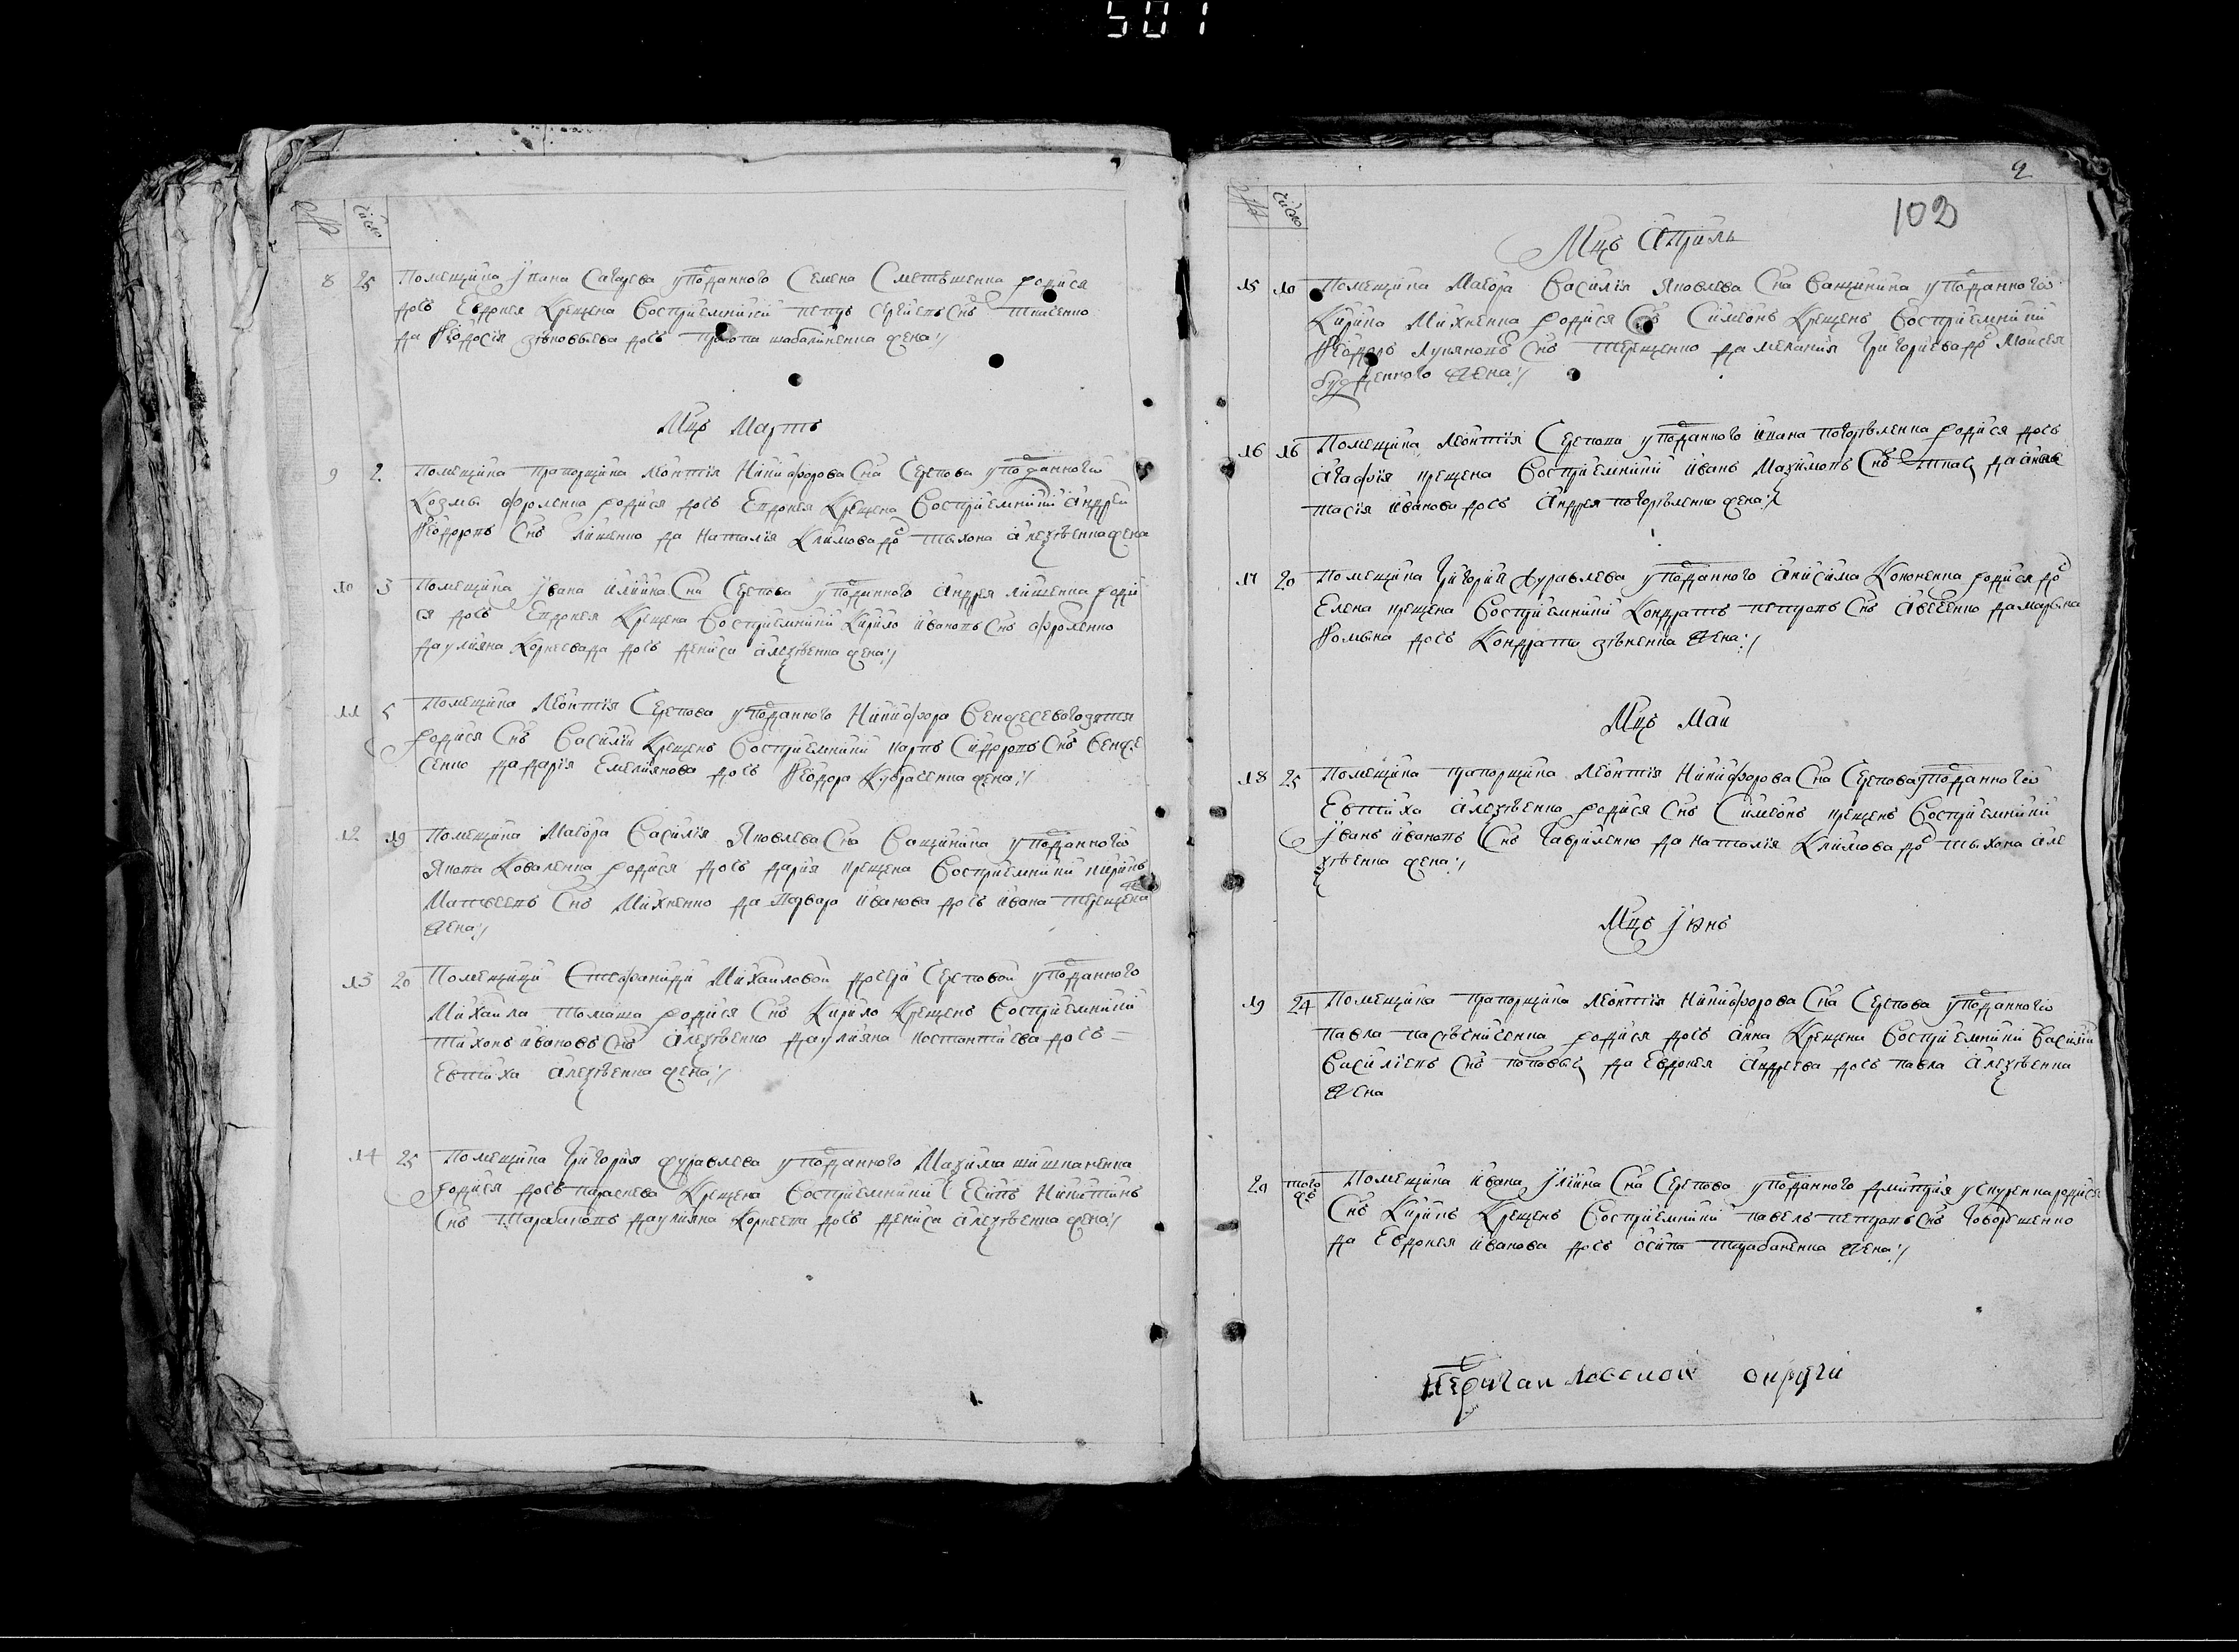 501
число
8 25 Помещика Ивана Сагарева у подданного Семена Сметешенка родися
дочь Евдокея Крещена Восприемники петръ сергеевъ Снъ
да Феодосія зѣновьева дочь прокопа шабалненка жена
Мцъ Мартъ
9 2 помещика прапорщика Леонтія Никифорова Сна Серкова у подданного
Козмы фроленка родися дочь Евдокея Крещена Восприемники Андрей
Феодоровъ Снъ лищенко да Наталія Климова доч тихона алеѯѣенка жена
10 3 Помещика Ивана иліина Сна Серкова у подданного Андрея лищенка роди
ся дочь Евдокея Крещена Восприемники Кирило Ивановъ Снъ фроленко
да уліяна Корнеева дочь дениса алеѯѣенка жена
11 5 Помещика Леонтія Серкова у подданного Никифора зятя
родися Снъ Василіи Крещенъ Восприемники карпъ Сидоровъ Снъ
сенко да дарія Емеліянова дочь Феодора жена
12 19 Помещика Маеора Василія Яковлева Сна Ващинина у подданного
Якова Коваленка родися дочь дарія крещена Восприемники кирикъ
Матвеевъ Снъ Михненко да варвара иванова дочь ивана терещенка
жена
13 20 Помещици Стефаниди Михайловой дочери Серковой у подданного
Михаила томаша родися Снъ Кирило Крещенъ Восприемники
тихонъ ивановъ Снъ алеѯѣенко да уліяна костантиева дочь
Евтиха алеѯѣенка жена
14 25 Помещика Григорія журавлева у подданного Маѯима шишканенка
родися дочь параскева Крещена Восприемники Есипъ Никитинъ
Снъ тарабановъ да уліяна Корнеева дочь дениса алеѯѣенка жена
9
102
число
Мцъ Априль
15 10 Помещика Маеора Василія Яковлева Сна Ващинина у подданного
Кирика Михненка родися Снъ Симеонъ Крещенъ Восприемники
Феодоръ Лукяновъ Снъ терещенко да мелания Григориева доч Моисея
жена
16 16 Помещика Леонтія Серкова у подданного ивана родися дочь
агафія крещена Восприемники иванъ Маѯимовъ Снъ ткачь да анас
тасія иванова дочь Андрея жена
17 20 Помещика Григория Журавлева у подданного анисима Кононенка родися доч
Елена крещена Восприемники Кондратъ петровъ Снъ да марина
Фомина дочь Кондрата зѣненка жена
Мцъ Маи
18 25 Помещика прапорщика Леонтія Никифорова Сна Серкова у подданного
Евтиха алеѯѣенка родися Снъ Симеонъ крещенъ Восприемники
Иванъ ивановъ Снъ Гавриленко да наталія Климова доч тихона але
ѯѣенка жена
Мцъ Июнь
19 24 Помещика прапорщика Леонтія Никифорова Сна Серкова у подданного
павла родися дочь анна Крещена Восприемники Василіи
Василіевъ Снъ поповъ да Евдокея Андреева дочь павла алеѯѣенка
жена
20 того ж Помещика ивана Іліина Сна Серкова у подданного дмитрія родися
Снъ Кирикъ Крещенъ Восприемники павелъ петровъ Снъ
да Евдокея иванова дочь осипа тарабаненка жена
округи